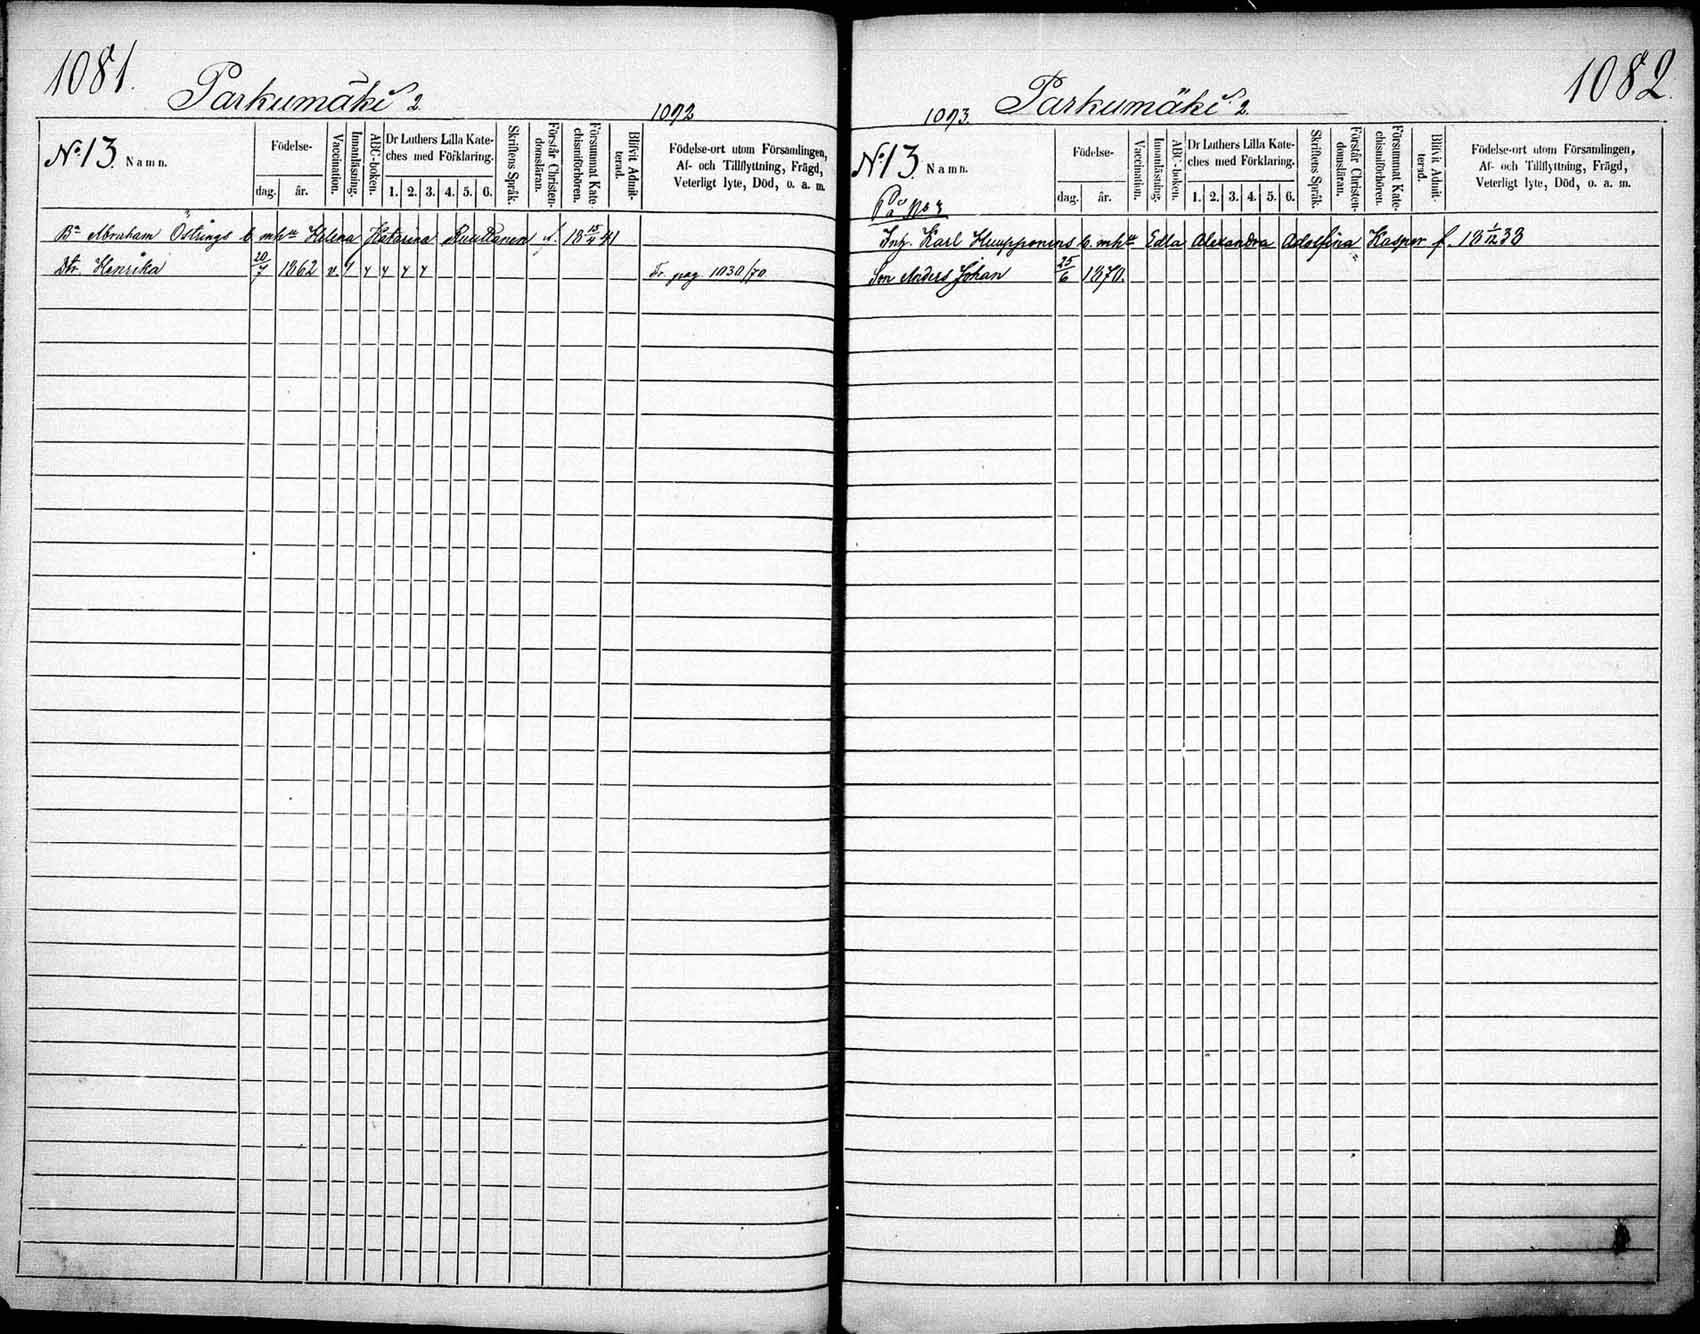 1081.
Parkumäki 2
1092
No 13. Namn.
Födelse-
dag.
år.
Vaccination.
Innanläsning.
ABC-boken.
Dr Luthers Lilla Kate-
ches med Förklaring.
1. 2. 3. 4. 5. 6.
Skriftens Språk.
Förstår Christen-
domsläran.
Försummat Kate-
chismiförhören.
Blifvit Admit-
terad.
Födelse-ort utom Församlingen,
Af- och Tillflyttning, Frägd,
Veterligt lyte, Död, o. a. m.
Abraham Östrings Helena Katarina f. 18 15/4 41
Dtr. Henrika 20/7 1862 Fr. pag 1030/70
1082.
1093. Parkumäki 2.
No 13. Namn.
Födelse-
dag.
år.
Vaccination.
Innanläsning.
ABC-boken.
Dr Luthers Lilla Kate-
ches med Förklaring.
1. 2. 3. 4. 5. 6.
Skriftens Språk.
Förstår Christen-
domsläran.
Försummat Kate-
chismiförhören.
Blifvit Admit-
terad.
Födelse-ort utom Församlingen,
Af- och Tillflyttning, Frägd,
Veterligt lyte, Död, o. a. m.
Inh. Karl Huupponens Edla Alexandra Adolfina Kasper f. 18 1/12 38
Son Anders Johan 25/6 1870.